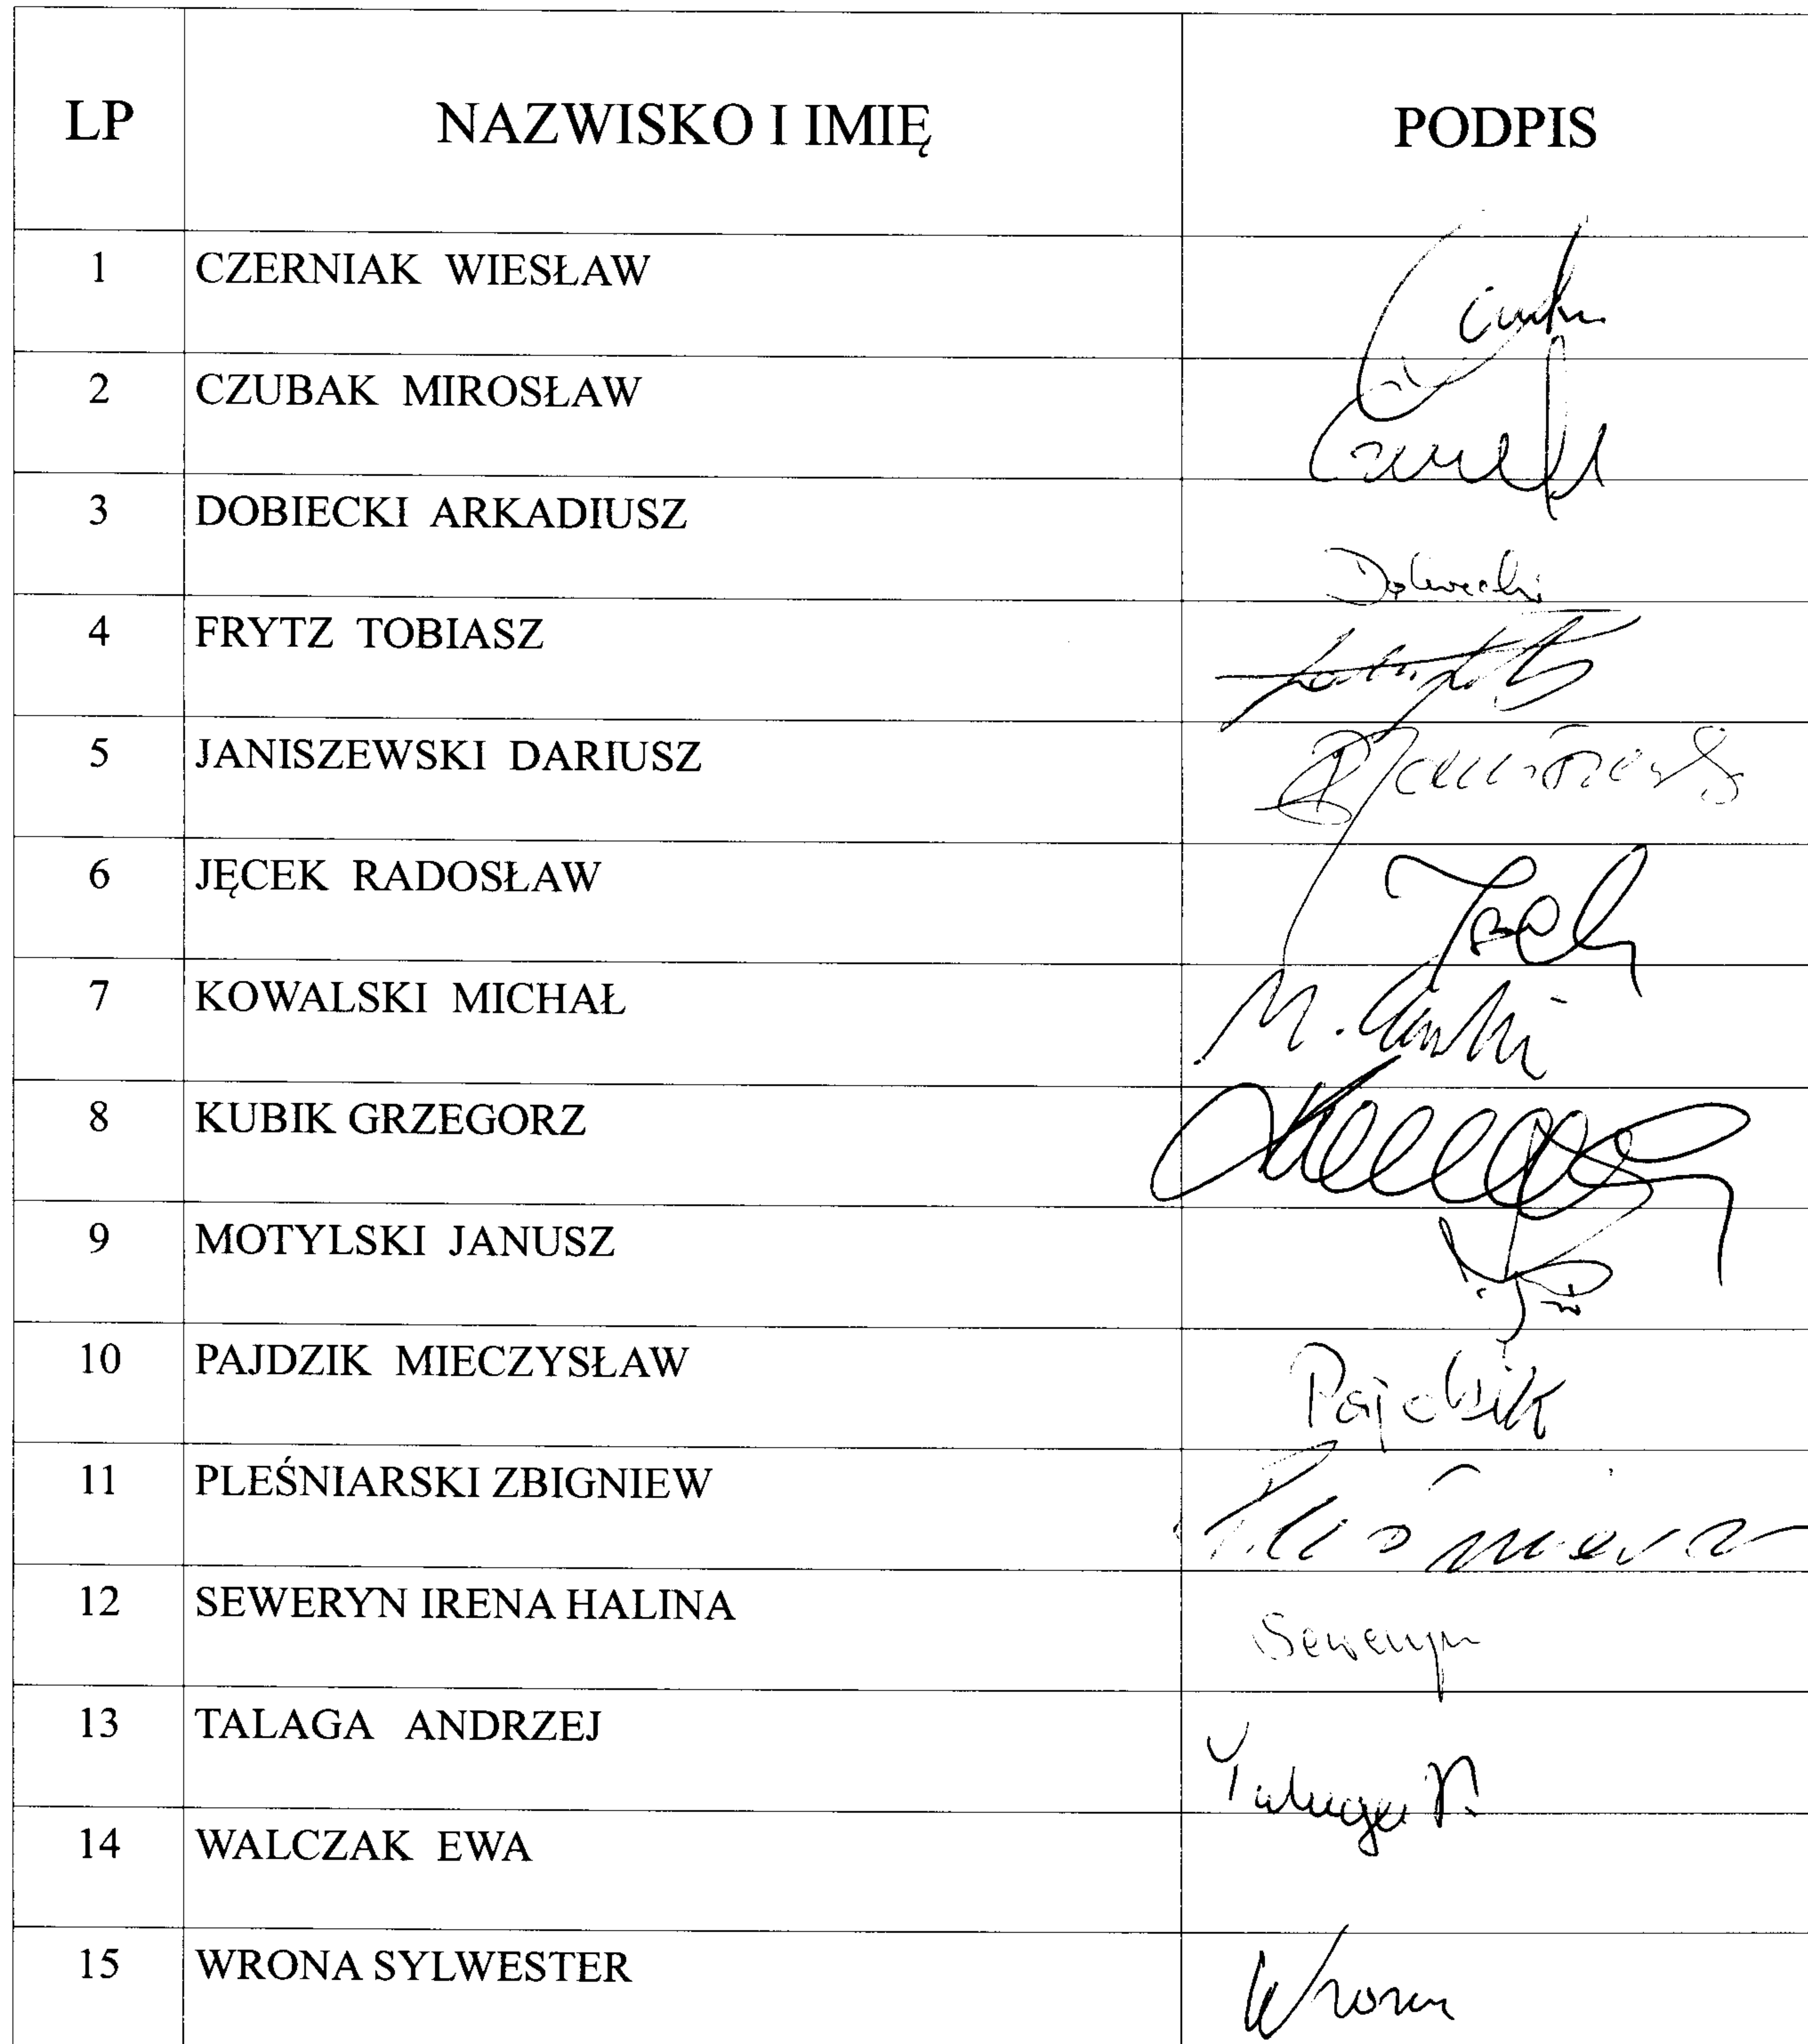 LP NAZWISKO I IMIĘ PODPIS
1 CZERNIAK WIESŁAW
2 CZUBAK MIROSŁAW
3 DOBIECKI ARKADIUSZ Dobiecki
4 FRYTZ TOBIASZ
5 JANISZEWSKI DARIUSZ
6 JĘCEK RADOSŁAW
7 KOWALSKI MICHAŁ
8 KUBIK GRZEGORZ
9 MOTYLSKI JANUSZ
10 PAJDZIK MIECZYSŁAW Pajdzik
11 PLEŚNIARSKI ZBIGNIEW
12 SEWERYN IRENA HALINA Seweryn
13 TALAGA ANDRZEJ Talaga A.
14 WALCZAK EWA
15 WRONA SYLWESTER Wrona